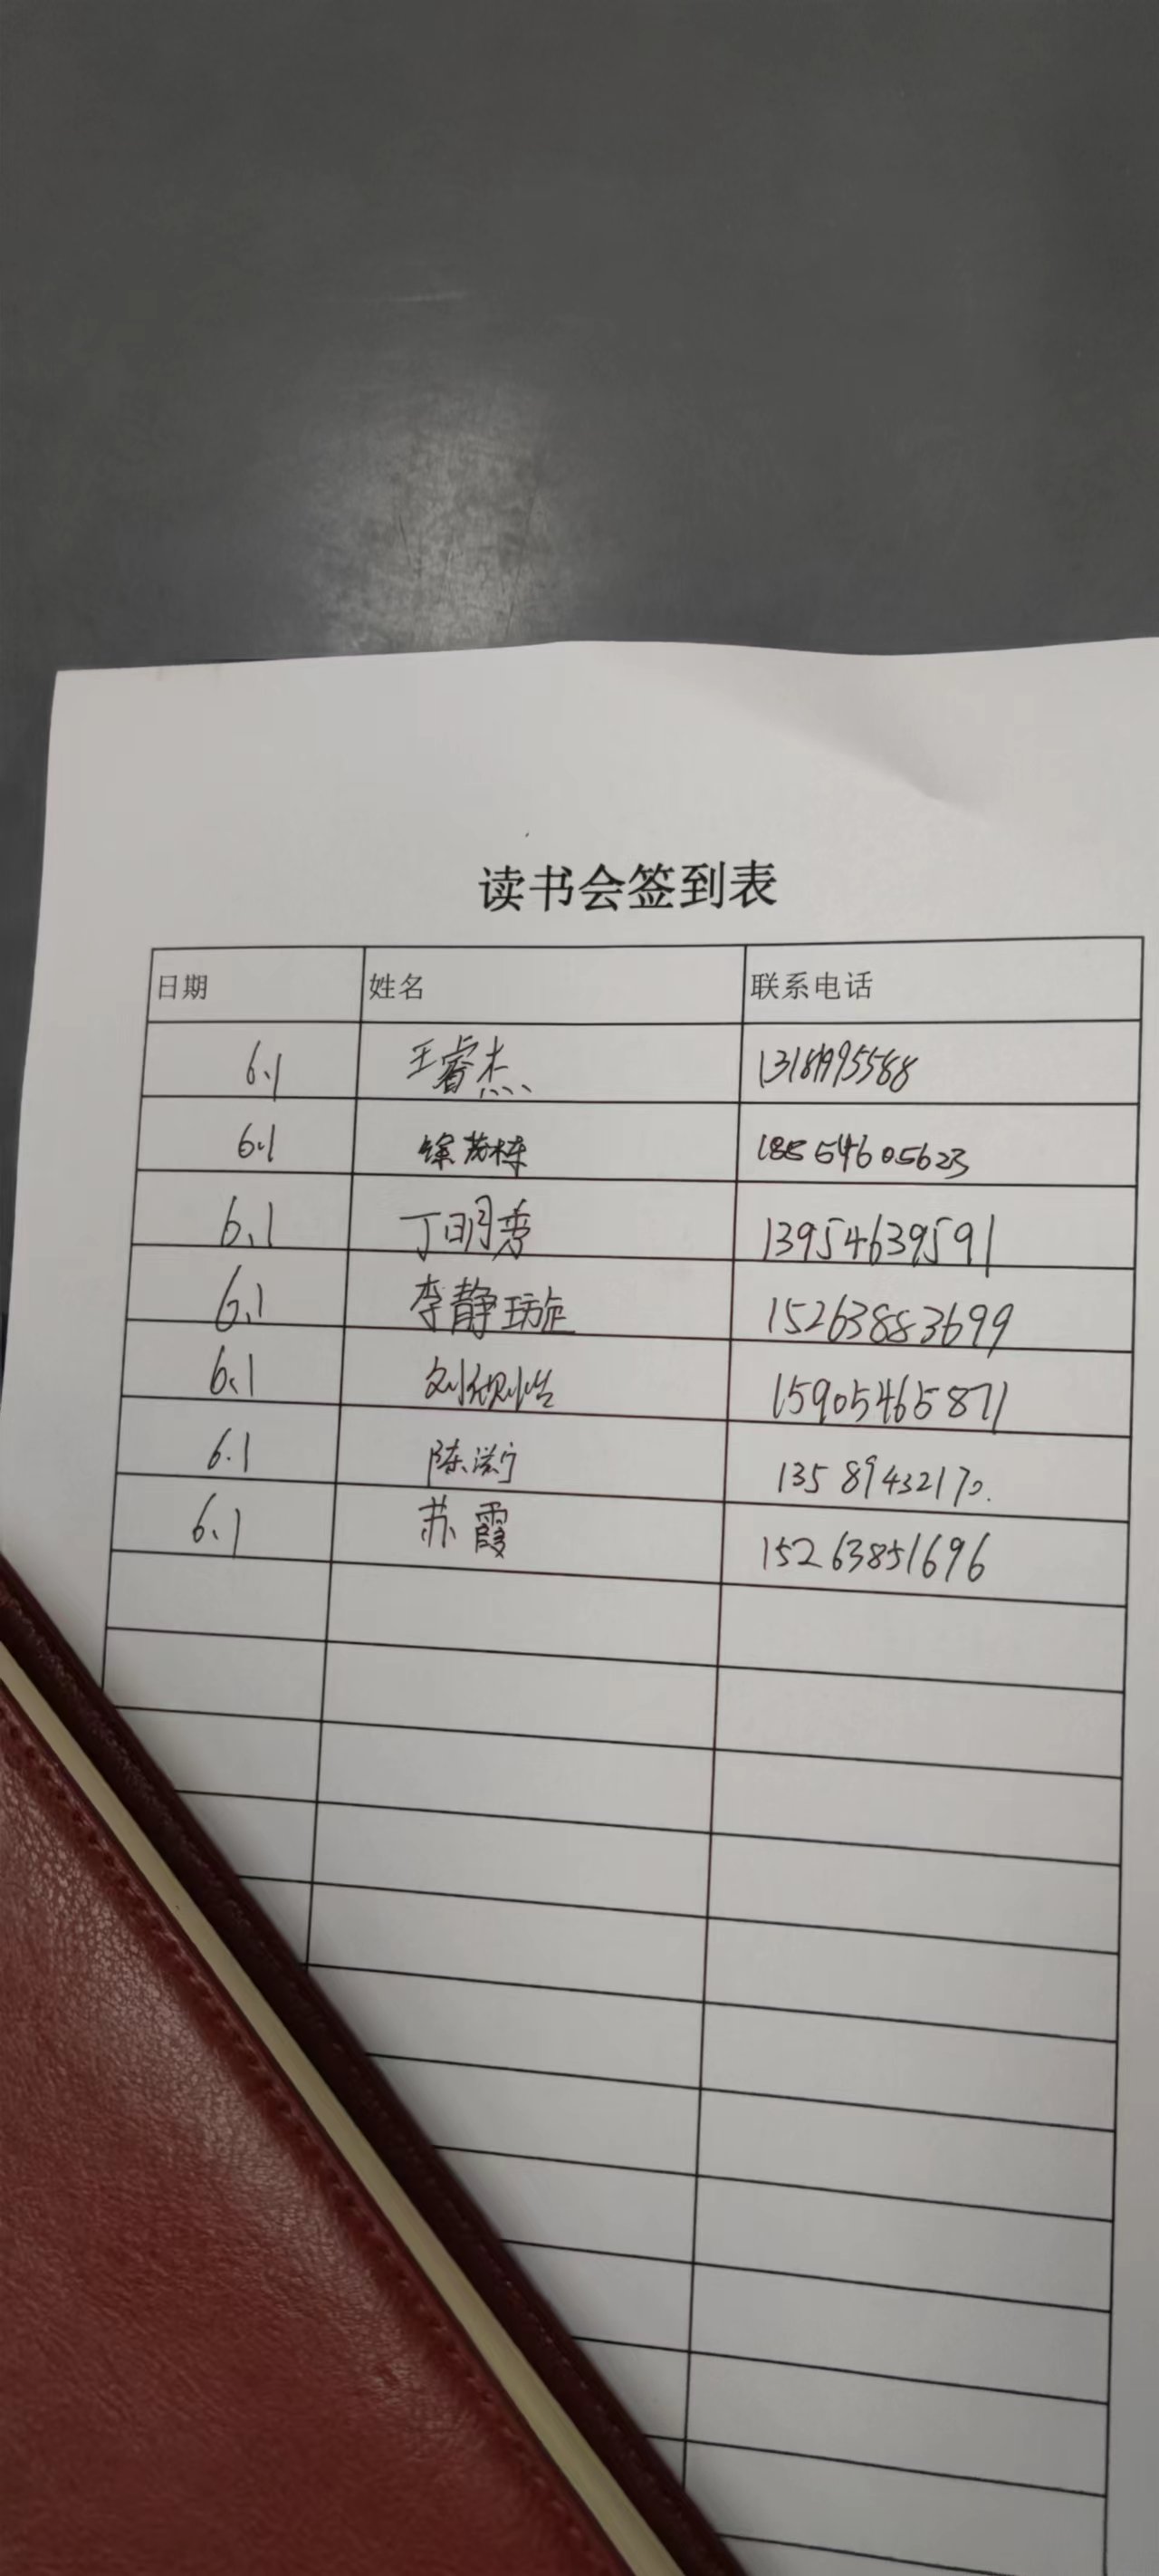 读书会签到表
日期 姓名 联系电话
6.1 王睿杰
6.1 徐茂栋 18554605623
6.1 丁明秀 13954639591
6.1 李静璇 15263883699
6.1 15905465871
6.1 陈 13589432170.
6.1 苏霞 15263851696